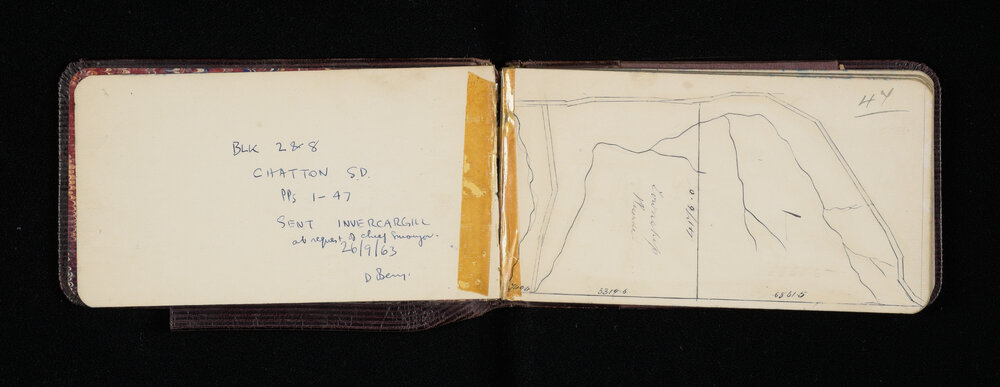 BLK 2&8
CHATTON S.D.
PPs 1-47
SENT INVERCARGILL
at request of chief Surveyor.
26/9/63
D Berry.
47
Township
Reserve
3319.6
6861.5